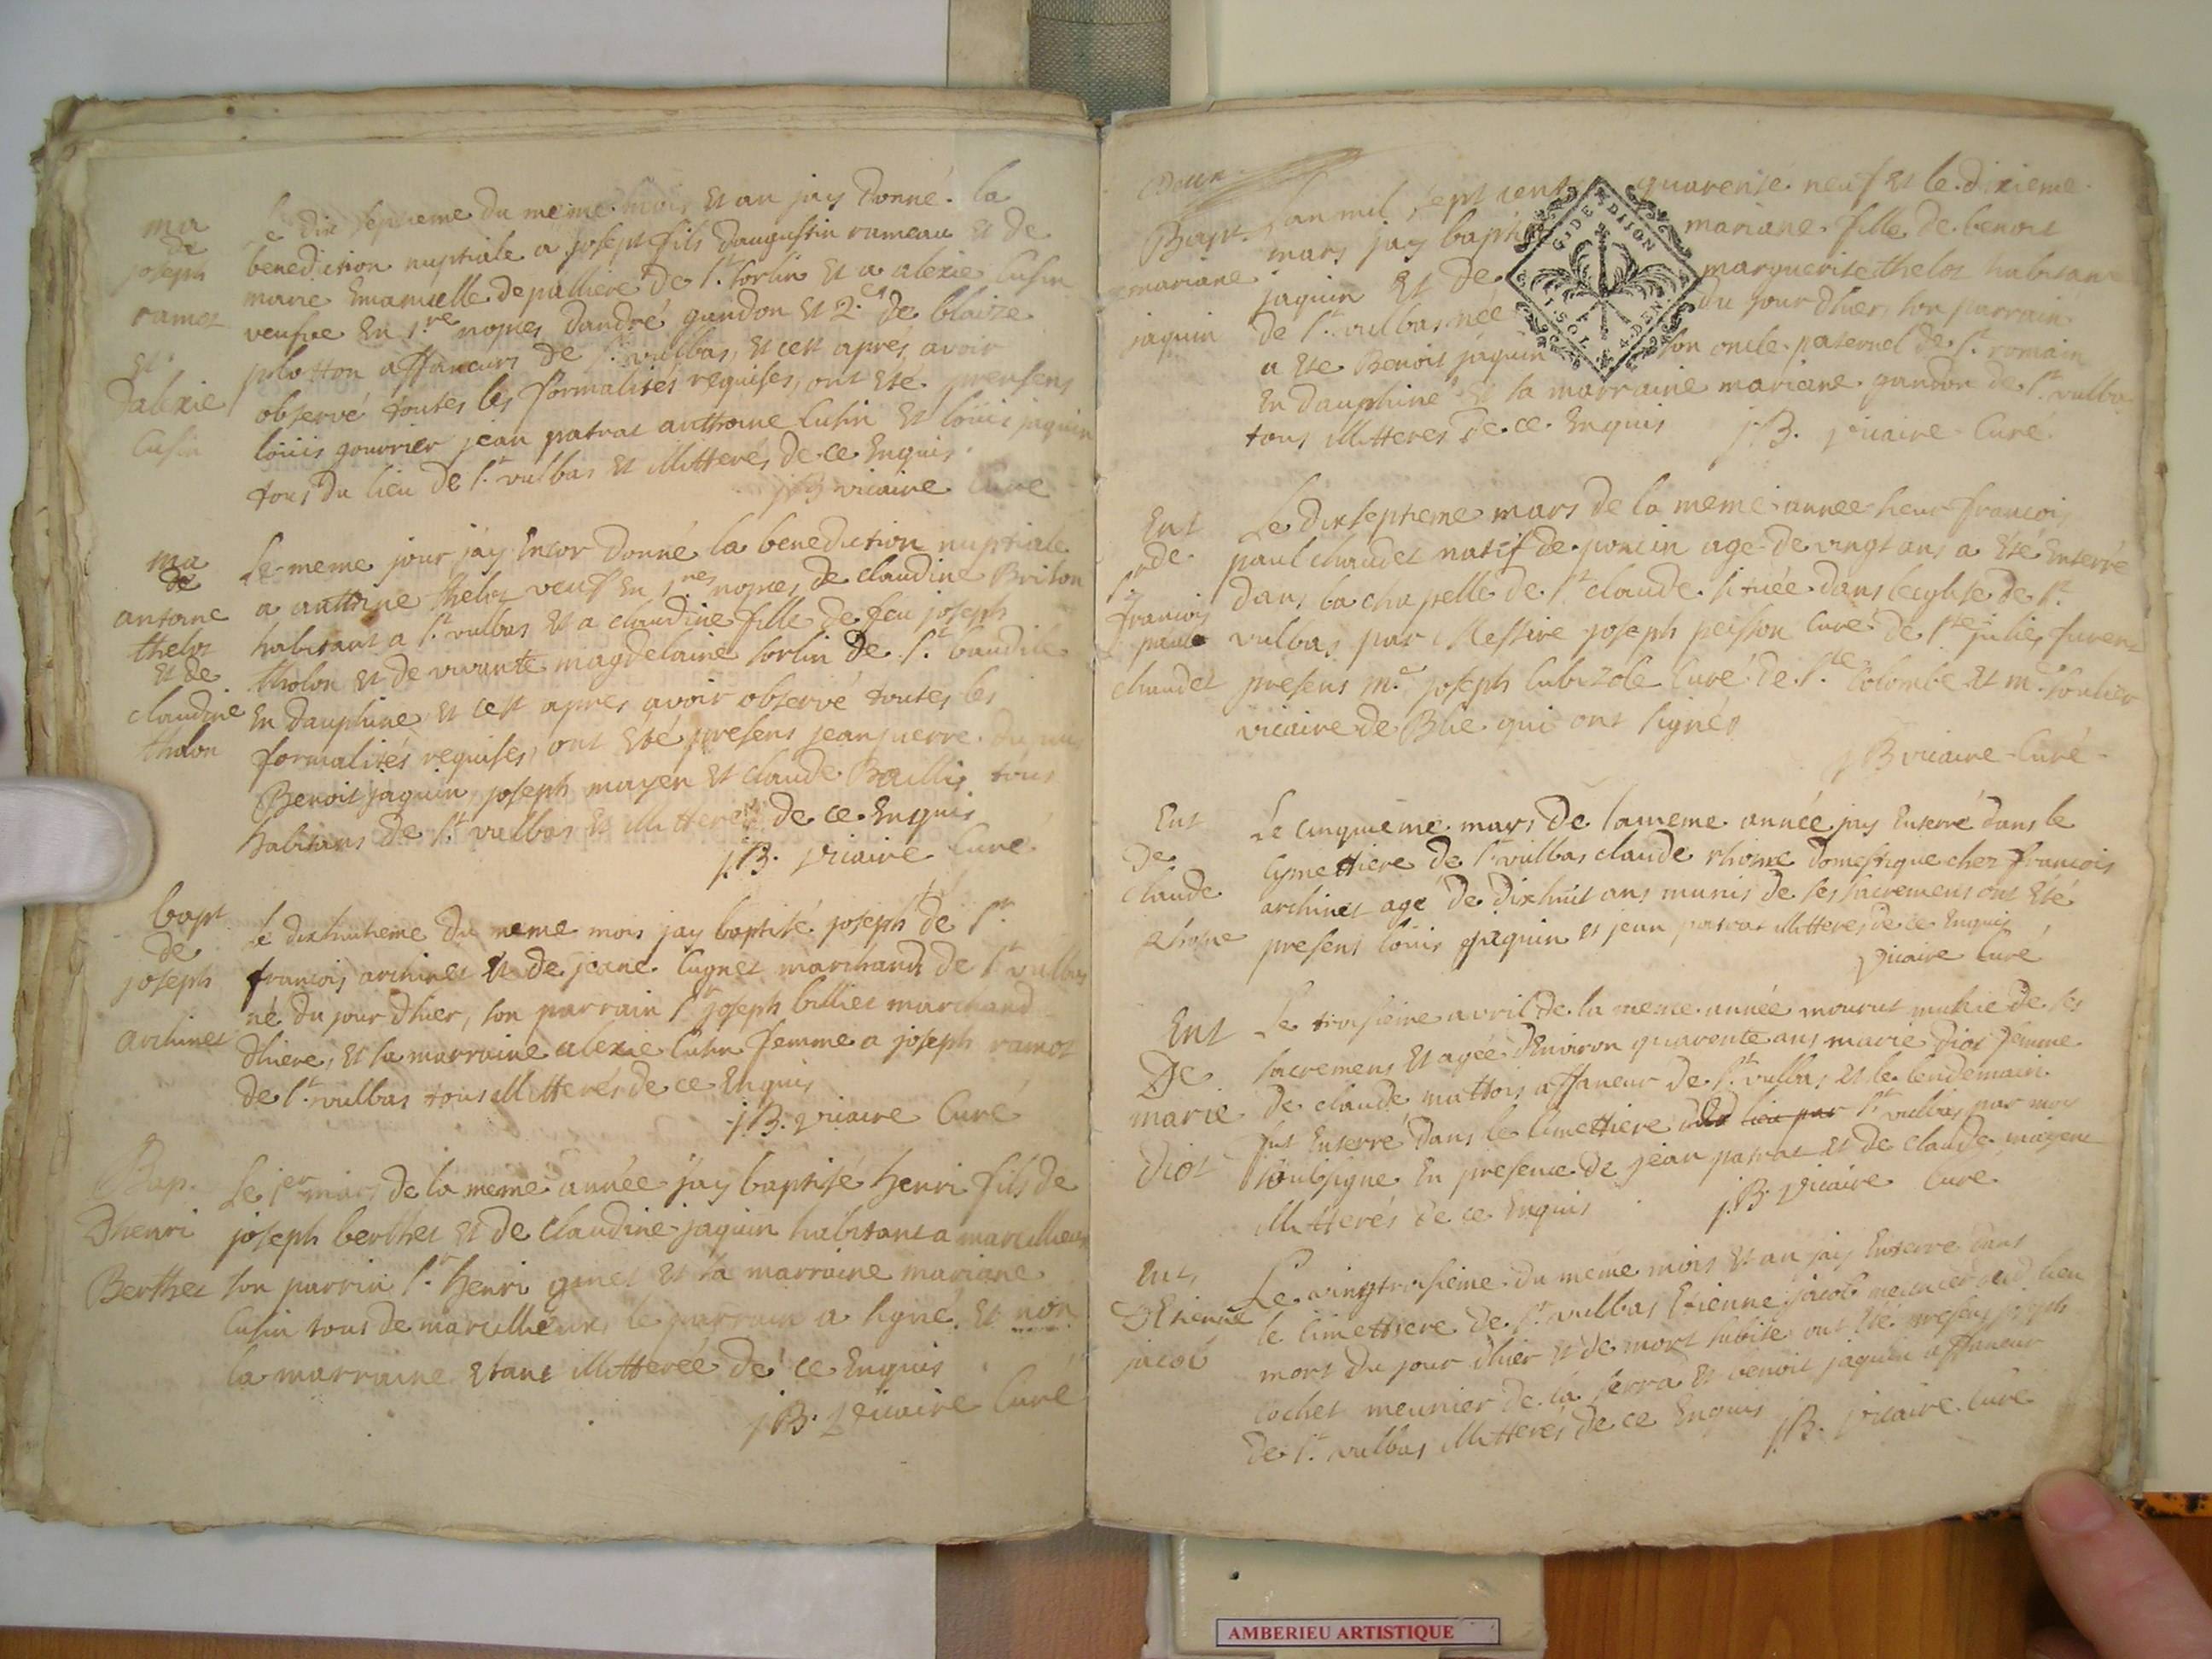 ma
de
joseph
ramet
Et
dalexie
Cusin
Le dix septieme du meme mois Et an jay donné la
benediction nuptiale a josept fils daugustin rameau Et de
marie Emanuelle depalliere de st. sorlin Et a alexie Cusin
veufve En 1.re nopces dandré gandon Et 2.e de blaize
plotton affaneurs de st. vulbas, Et cest aprés avoir
observé toutes les formalités requises, ont Eté presens
loüis gouvrier jean patrat anthoine Cusin Et loüis jaquin
tous du lieu de st. vulbas Et illitterés de ce Enquis
j B vicaire Curé
ma
de
antoine
thelot
Et de
claudine
tholon
Le meme jour jay Encor donné la benediction nuptiale
a anthoine thelot veuf En 1.res nopces de claudine Briton
habitant a st. vulbas Et a claudine fille de feu joseph
tholon Et de vivante magdelaine sorlin de st. baudile
En dauphine, Et cest apres avoir observé toutes les
formalités requises, ont Eté presens jean pierre
Benoit jaquin, joseph mayen Et claude Baillis tous
habitans de st. vulbas Et illitterés de ce Enquis
j.B. vicaire Curé
bapt
de
joseph
archinet
Le dixhuitieme du meme mois jay baptisé joseph de sr.
francois archinet Et de jeane Cugnet marchands de st vulbas
né du jour dhier, son parrain sr joseph billiet marchand
dhiere, Et sa marraine alexie Cusin femme a joseph ramet
de st. vulbas tous illitterés de ce Enquis
j.B. vicaire Curé
Bap.
Dhenri
Berthet
Le 1er mars de la meme année jay baptisé henri fils de
joseph berthet Et de Claudine jaquin habitant a marcillieux
son parrin sr. henri ginet Et sa marraine mariane
Cusin tous de marcillieux, le parrain a signé, Et non
la marraine Etant illitterée de ce Enquis
j.B. vicaire Curé
Bapt.
mariane
jaquin
Lan mil sept cent quarente neuf Et le dixieme
mars jay baptisé mariane fille de benoit
jaquin Et de marguerite thelot habitans
de st. vulbas née du jour dhier, son parrain
a Eté Benoit jaquin son oncle paternel de st. romain
En dauphiné Et sa marraine mariane gandon de st. vulba
tous illitteres de ce Enquis j.B. vicaire Curé
GIDE DIJON
Ent
de
sr
francois
paul
chaudet
Le dixseptieme mars de la meme annee sieur francois
paul chaudet natif de poncin age de vingt ans a Eté Enterré
dans la chapelle de st claude située dans leglise de st.
vulbas par Messire joseph peisson Curé de ste julie, furent
presens mre joseph Cubizole Curé de ste Colombe Et mre soulier
vicaire de Blie qui ont signés
j B vicaire Curé
Ent
de
claude
rhosne
Le cinquieme mars de la meme année jay Enterré dans le
Cymettiere de st vulbas claude rhosne domestique chez francois
archinet agé de dixhuit ans munis de ses sacremens ont Eté
presens loüis jaquin Et jean patrat illitterés de ce Enquis
vicaire Curé
Ent
De
marie
diot
Le troisieme avril de la meme année mourut munie de ses
sacremens Et agée d'Environ quarente ans marie diot femme
de claude mattois affaneur de st. vulbas, Et le lendemain
fut Enterré dans le Cimettiere du lieu par st vulbas, par moy
soubsigné En presence de jean patrat et de claude mayene
illitterés de ce Enquis j.B. vicaire Curé
Ent,
DEtienne
jacob
Le vingtroisieme du meme mois Et an jay Enterré dans
le Cimettiere de st. vulbas Etienne jacob meunier aud. lieu
mort du jour dhier Et de mort subite ont Eté presens joseph
Cochet meunier de la serra Et benoit jaquin affaneur
de st. vulbas illitterés de ce Enquis j.B. vicaire Curé
AMBERIEU ARTISTIQUE